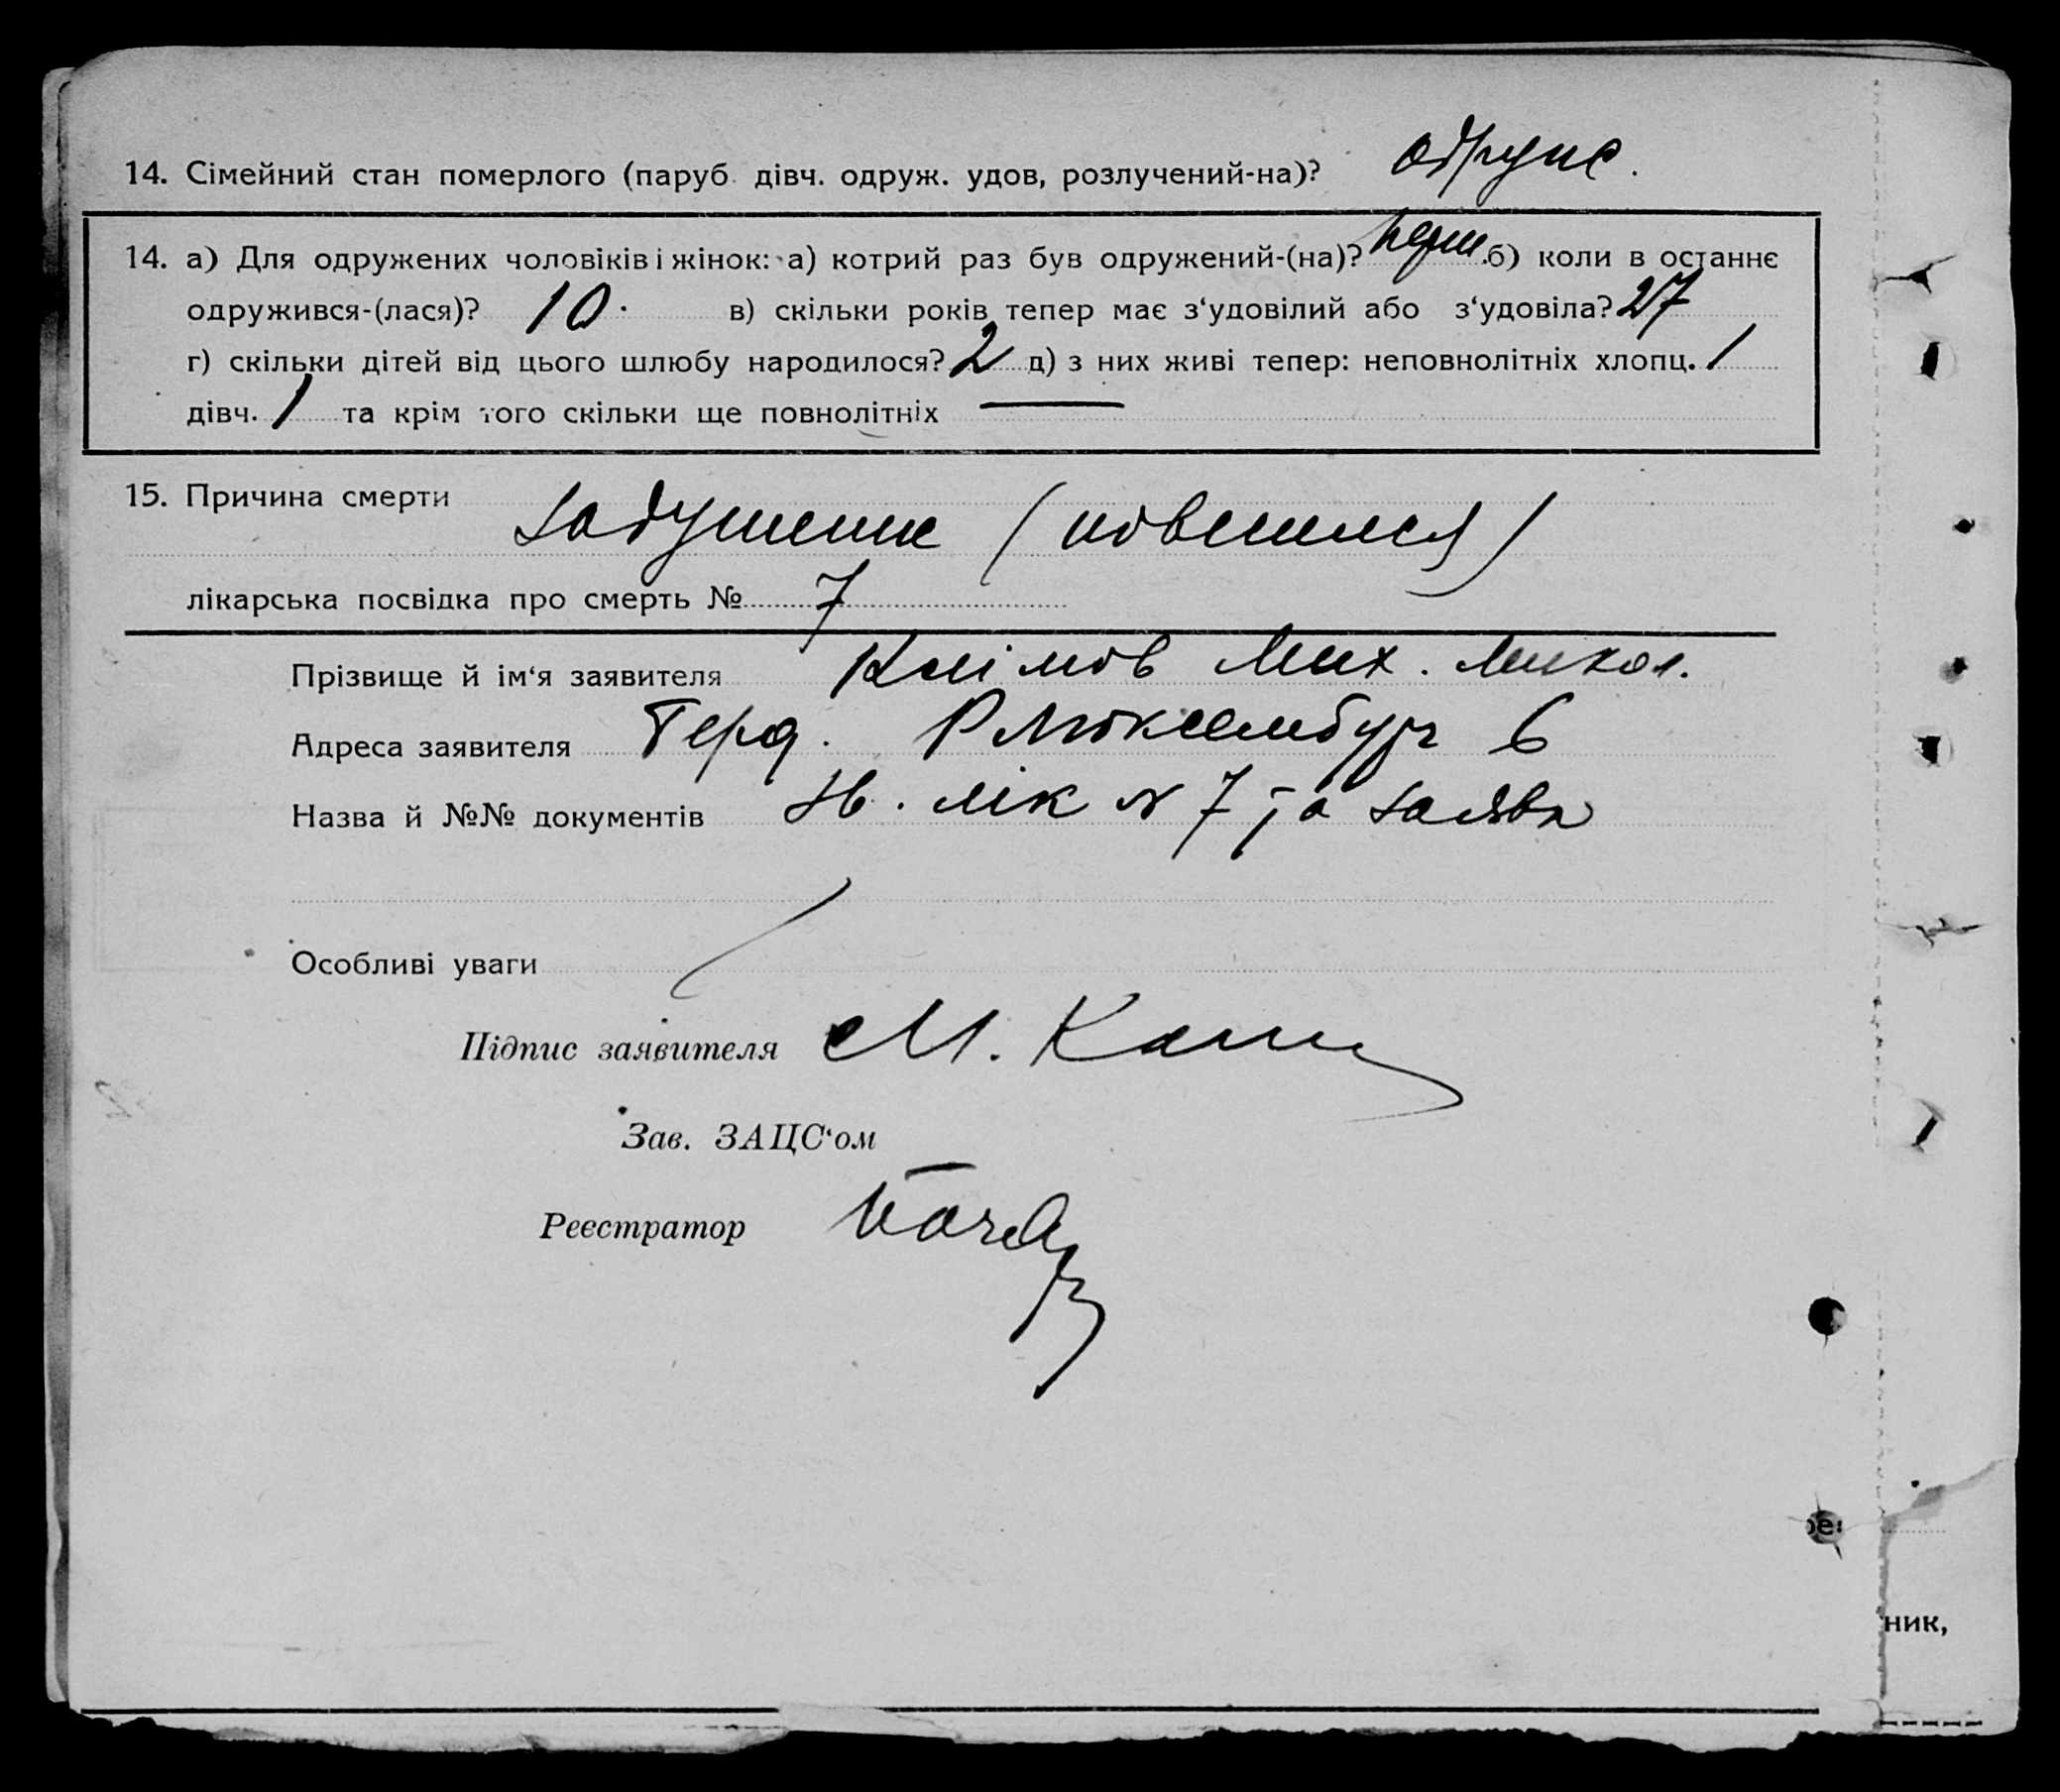 14. Сімейний стан померлого (паруб. дівч. одруж. удов, розлучений-на)? одруж.
14. а) Для одружених чоловіків і жінок: а) котрий раз був одружений-(на)? перш. б) коли в останнє
одружився-(лася)? 10. в) скільки років тепер має з‘удовілий або з‘удовіла? 27
г) скільки дітей від цього шлюбу народилося? 2 д) з них живі тепер: неповнолітніх хлопц. 1
дівч. 1 та крім того скільки ще повнолітніх —
15. Причина смерти
задушення (повешился)
лікарська посвідка про смерть № 7
Прізвище й ім‘я заявителя Клімов Мих. Микол.
Адреса заявителя Р Люксембург 6
Назва й №№ документів лік № 7 та заява
Особливі уваги
Підпис заявителя М.
Зав. ЗАЦС‘ом
Реєстратор
ник,